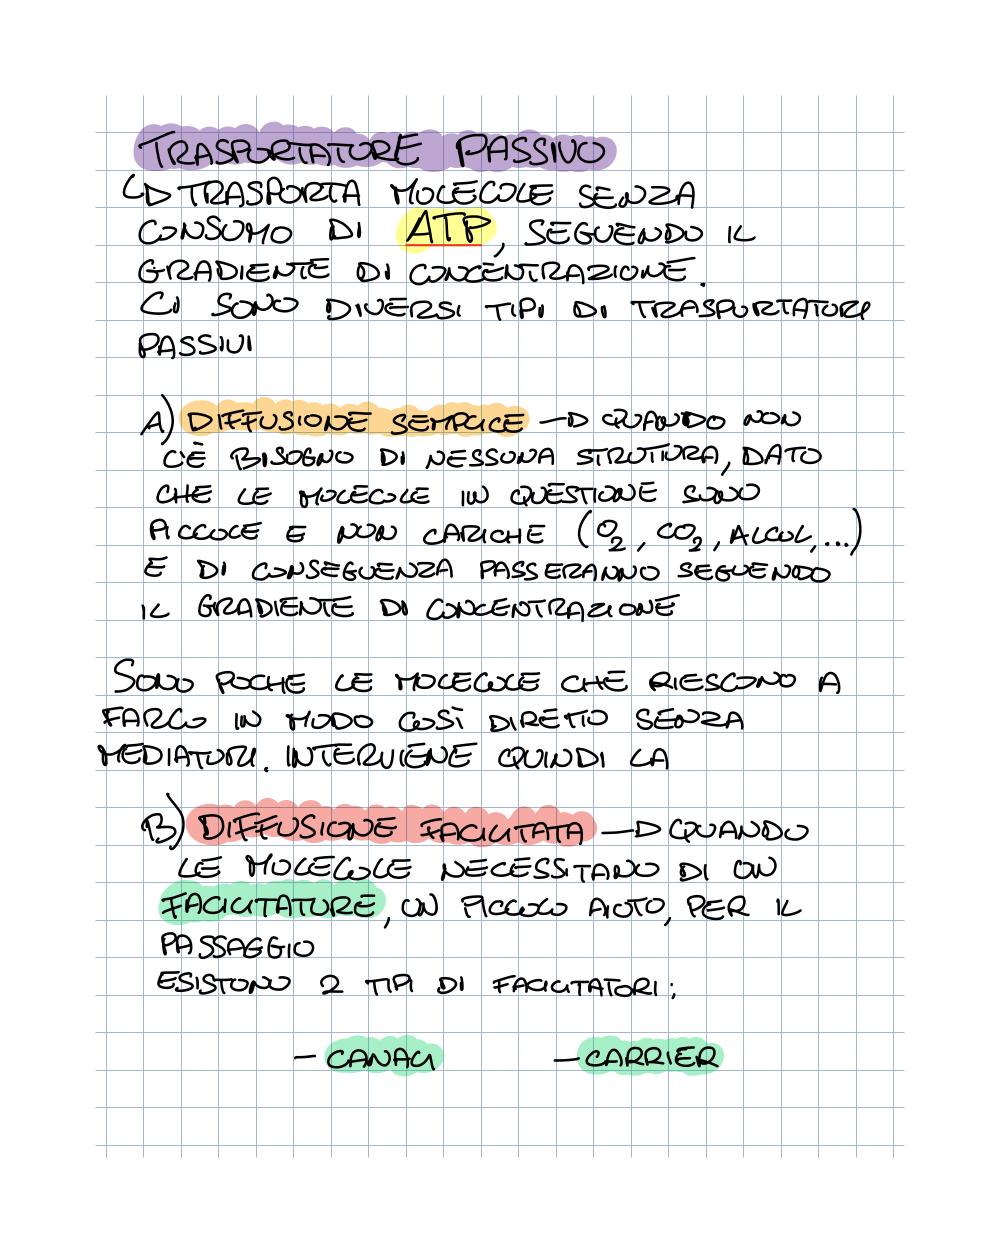 TRASPORTATORE PASSIVO
↳ TRASPORTA MOLECOLE SENZA
CONSUMO DI ATP, SEGUENDO IL
GRADIENTE DI CONCENTRAZIONE.
CI SONO DIVERSI TIPI DI TRASPORTATORI
PASSIVI
A) DIFFUSIONE SEMPLICE → QUANDO NON
C'È BISOGNO DI NESSUNA STRUTTURA, DATO
CHE LE MOLECOLE IN QUESTIONE SONO
PICCOLE E NON CARICHE (O₂, CO₂, ALCOL, ...)
E DI CONSEGUENZA PASSERANNO SEGUENDO
IL GRADIENTE DI CONCENTRAZIONE
SONO POCHE LE MOLECOLE CHE RIESCONO A
FARLO IN MODO COSÌ DIRETTO SENZA
MEDIATORI. INTERVIENE QUINDI LA
B) DIFFUSIONE FACILITATA → QUANDO
LE MOLECOLE NECESSITANO DI UN
FACILITATORE, UN PICCOLO AIUTO, PER IL
PASSAGGIO
ESISTONO 2 TIPI DI FACILITATORI:
- CANALI - CARRIER